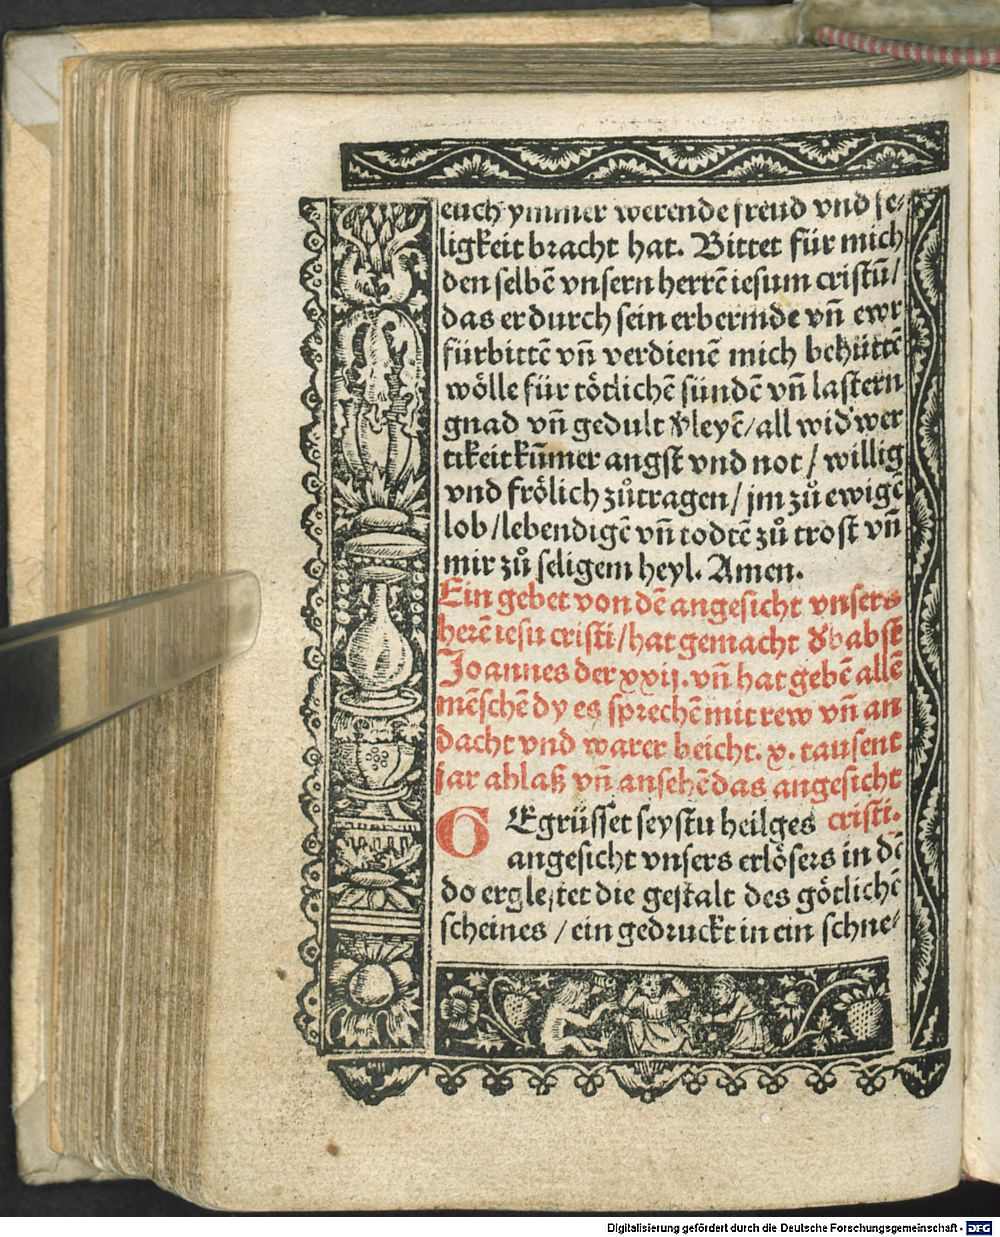 euch ymmer werende freud vnd se⸗
ligkeit bracht hat. Bittet für mich
den selbē vnsern herrē iesum cristū/
das er durch sein erbermde vn̄ ewr
fürbittē vn̄ verdienē mich behüttē
wölle für tötlichē sündē vn̄ lastern
gnad vn̄ gedult v̓leyē/ all wid̓wer
tikeit kūmer angst vnd not / willig
vnd frölich zůtragen / jm zů ewigē
lob / lebendigē vn̄ todtē zů trost vn̄
mir zů seligem heyl. Amen.
Ein gebet von dē angesicht vnsers
herē iesu cristi/ hat gemacht d̓ babst
Joannes der xxij. vn̄ hat gebē allē
mēschē dy es sprechē mit rew vn̄ an
dacht vnd warer beicht. x. tausent
jar ablaß vn̄ ansehē das angesicht
cristi.
GEgrüsset seystu heilges
angesicht vnsers erlösers in dē
do erglestet die gestalt des götlichē
scheines / ein gedruckt in ein schne⸗
Digitalisierung gefördert durch die Deutsche Forschungsgemeinschaft - DFG